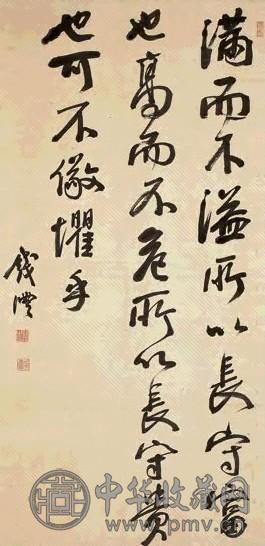 滿而不溢所以長守富
也高而不危所以長守貴
也可不儆懼乎
錢灃
中华收藏网
www.pmv.cn